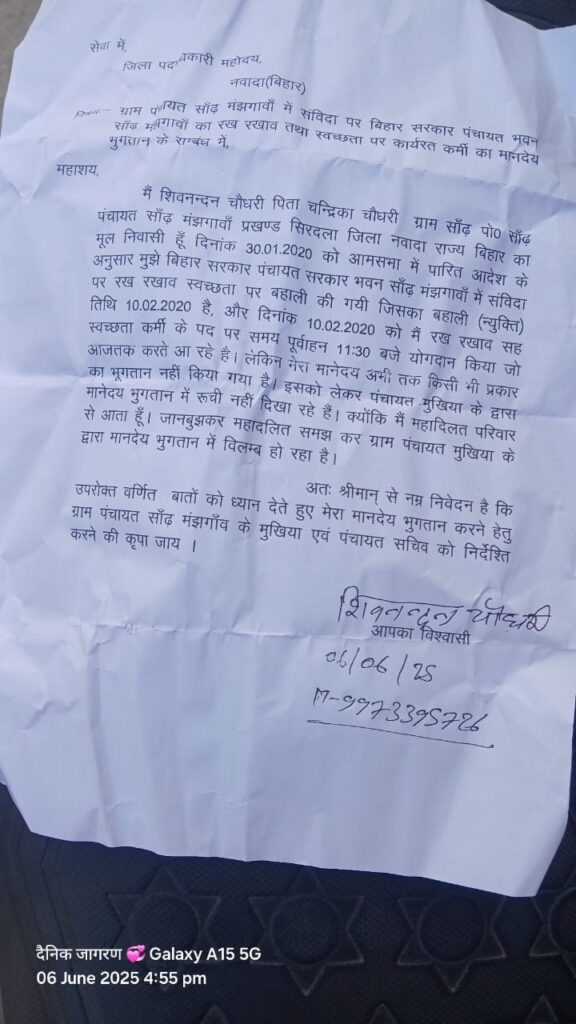 सेवा में,
जिला पदाधिकारी महोदय,
नवादा(बिहार)
विषय:- ग्राम पंचायत साँढ़ मंझगावाँ में संविदा पर बिहार सरकार पंचायत भवन
साँढ़ मंझगावाँ का रख रखाव तथा स्वच्छता पर कार्यरत कर्मी का मानदेय
भुगतान के सम्बंध में,
महाशय,
मैं शिवनन्दन चौधरी पिता चन्द्रिका चौधरी ग्राम साँढ़ पो0 साँढ़
पंचायत साँढ़ मंझगावाँ प्रखण्ड सिरदला जिला नवादा राज्य बिहार का
मूल निवासी हूँ दिनांक 30.01.2020 को आमसभा में पारित आदेश के
अनुसार मुझे बिहार सरकार पंचायत सरकार भवन साँढ़ मंझगावाँ में संविदा
पर रख रखाव स्वच्छता पर बहाली की गयी जिसका बहाली (न्युक्ति)
तिथि 10.02.2020 है, और दिनांक 10.02.2020 को मैं रख रखाव सह
स्वच्छता कर्मी के पद पर समय पूर्वाहन 11:30 बजे योगदान किया जो
आजतक करते आ रहे है। लेकिन मेरा मानेदय अभी तक किसी भी प्रकार
का भूगतान नहीं किया गया है। इसको लेकर पंचायत मुखिया के द्वारा
मानेदय भुगतान में रूची नहीं दिखा रहे हैं। क्योंकि मैं महादिलत परिवार
से आता हूँ। जानबुझकर महादलित समझ कर ग्राम पंचायत मुखिया के
द्वारा मानदेय भुगतान में विलम्ब हो रहा है।
अतः श्रीमान् से नम्र निवेदन है कि
उपरोक्त वर्णित बातों को ध्यान देते हुए मेरा मानदेय भुगतान करने हेतु
ग्राम पंचायत साँढ़ मंझगाँव के मुखिया एवं पंचायत सचिव को निर्देश्ति
करने की कृपा जाय ।
शिवनन्दन चौधरी
आपका विश्वासी
06/06/25
M-9973395726
दैनिक जागरण 💞 Galaxy A15 5G
06 June 2025 4:55 pm